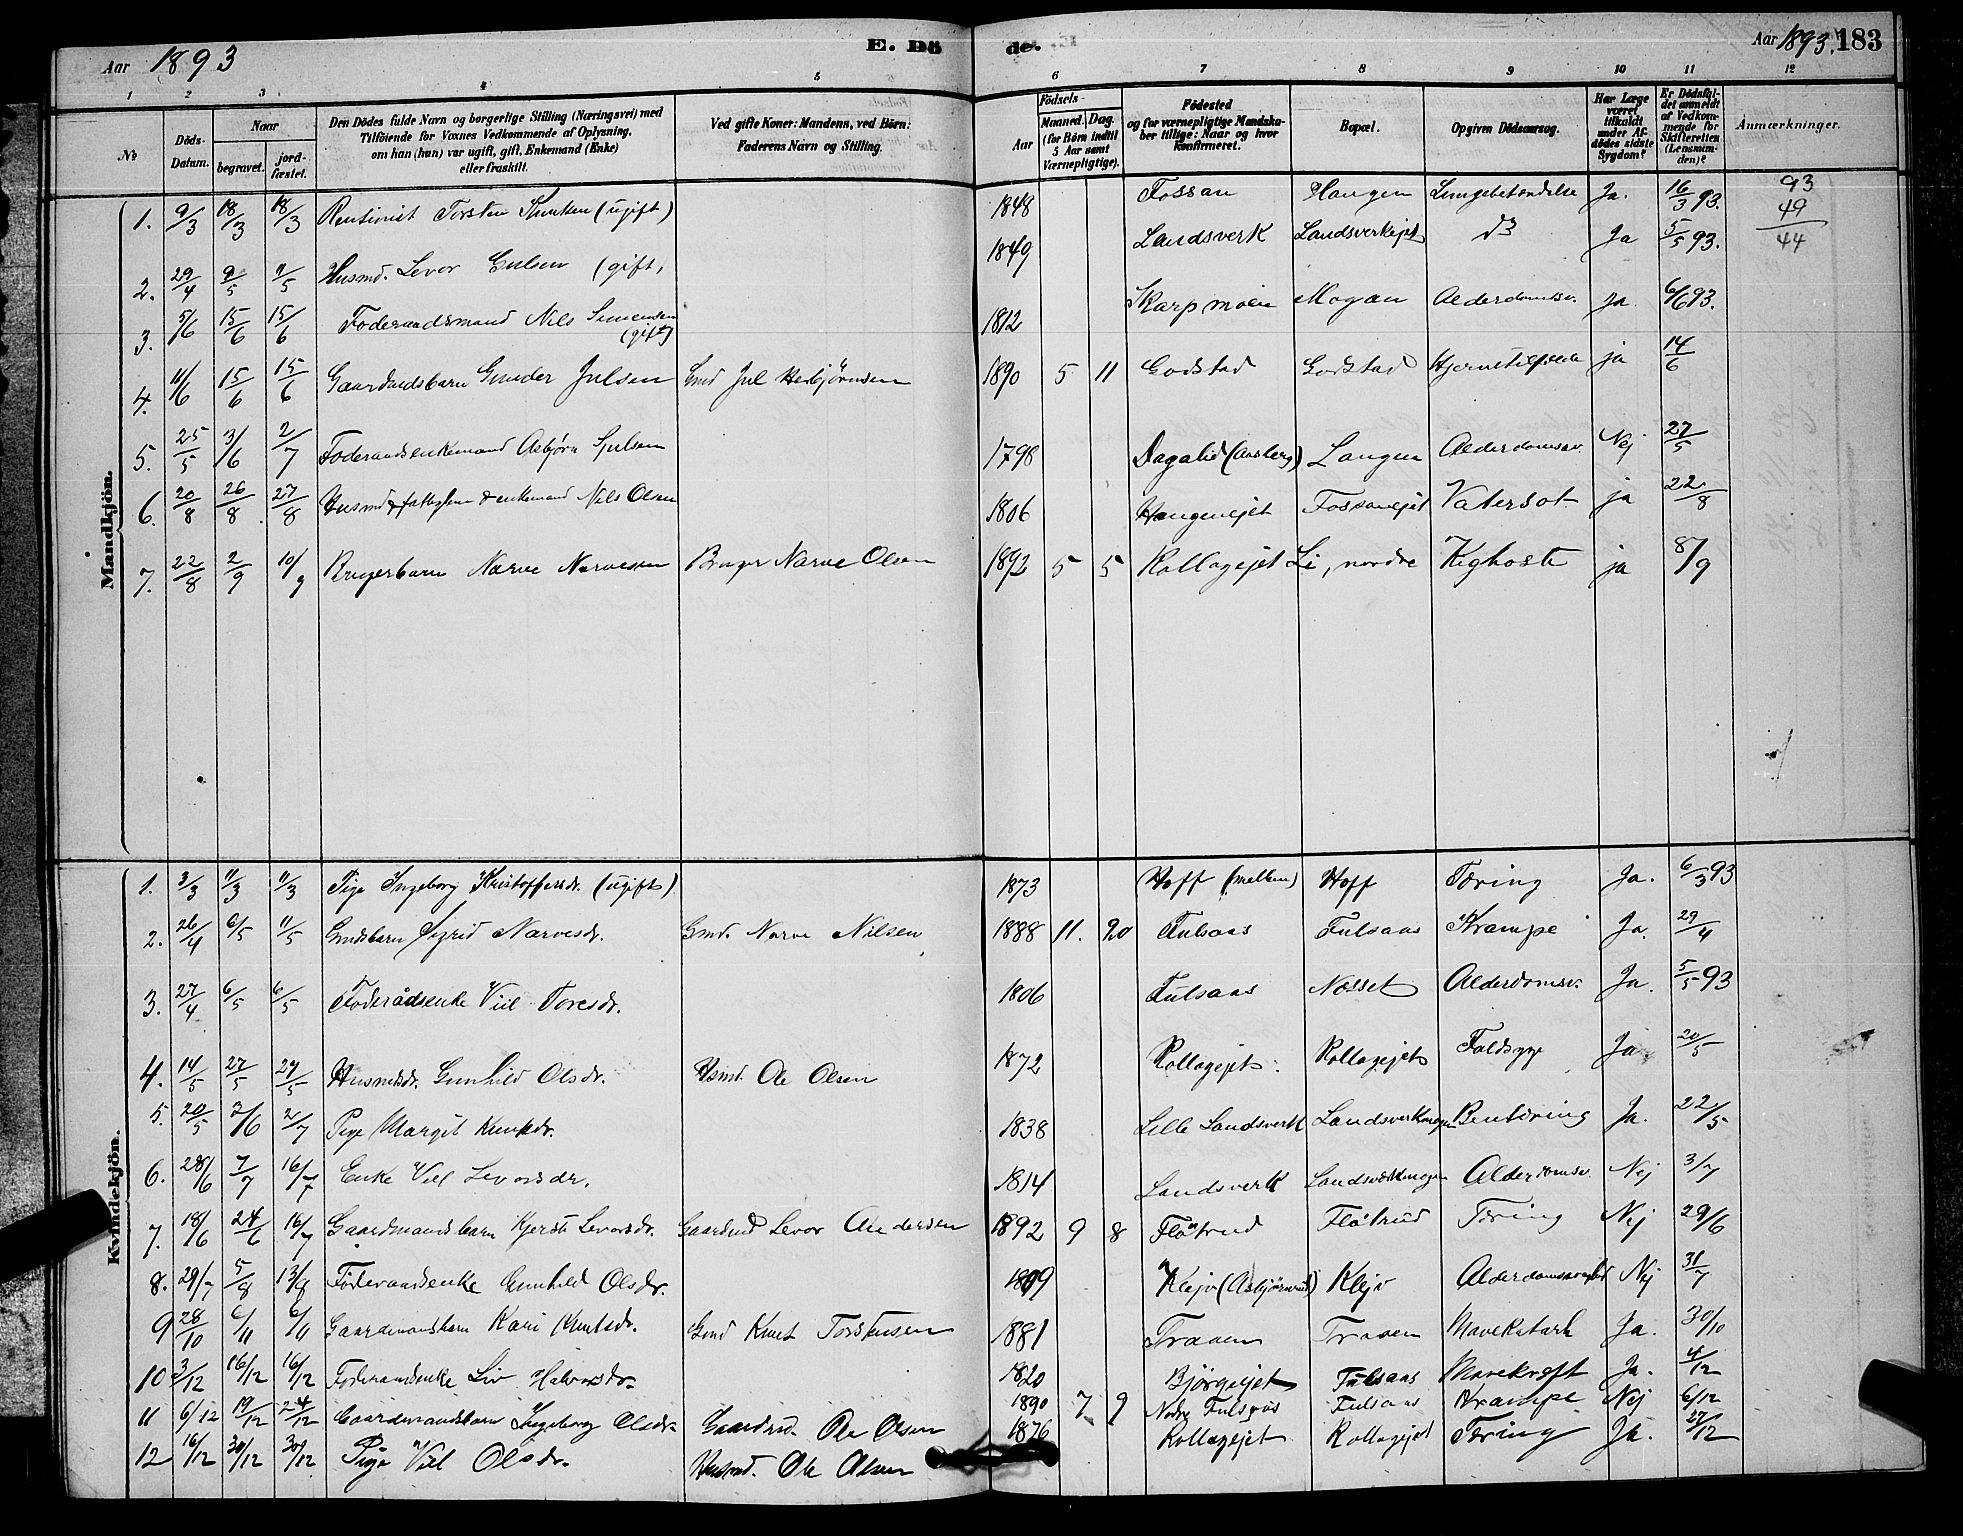 Aar 1893 E. Döde. Aar 1893. 183
1 2 3 4 5 6 7 8 9 10 11 12
№ Döds-Datum. Naar begravet. jordfæstet. Den Dödes fulde Navn og borgerlige Stilling (Næringsvei) med Tilföiende for Voxnes Vedkommende af Oplysning, om han (hun) var ugift, gift, Enkemand (Enke) eller fraskilt. Ved gifte Koner: Mandens, ved Börn: Faderens Navn og Stilling. Födsels- Aar Maaned. Dag. (for Börn indtil 5 Aar samt Værnepligtige). Födested og for værnepligtige Mandskaber tillige: Naar og hvor konfirmeret. Bopæl. Opgiven Dödsaarsag. Har Læge været tilkaldt under Afdödes sidste Sygdom? Er Dödsfaldet anmeldt af Vedkommende for Skifteretten (Lensmanden)? Anmærkninger.
Mandkjön.
1. 9/3 18/3 18/3 Torsten Knutsen (ugift) 1848 Fossan Haugen Lungebetændelse Ja. 16/3 93. 93 49 44
2. 29/4 9/5 11/5 Husmd. Levor (gift, 1849 Landsverk Landsverkejet do Ja 5/5 93.
3. 5/6 15/6 15/6 Foderaadsmand Nils Simensen (gift) 1812 Skarpmoen Mogan Alderdomssv. Ja. 6/6 93.
4. 11/6 15/6 15/6 Gaardmdsbarn Gunder Julsen Gmd Jul Herbjørnsen 1890 5 11 Godstad Godstad ja 14/6
5. 25/5 3/6 2/7 Foderaadsenkemand Asbjørn 1798 Dagalid Langen Alderdomssv. Nej 27/5
6. 20/8 26/8 27/8 Husmd & enkemand Nils Olsen 1806 Haugenejet Fossanejet Vatersot ja 22/8
7. 22/8 2/9 10/9 Brugerbarn Narve Narvesen Bruger Narve Olsen 1892 5 5 Rollagejet Li, nordre Kighoste ja 8/9
Kvindekjön.
1. 3/3 11/3 11/3 Pige Ingeborg Kristoffersdr. (ugift) 1873 Hoff (mellem) Hoff Tæring Ja. 6/3 93
2. 26/4 6/5 11/5 Gmdsbarn Sigrid Narvesdr. Gmd. Narve Nilsen 1888 11. 20 Fulsaas Fulsaas Krampe Ja. 29/4
3. 27/4 6/5 6/5 Føderådsenke Viel Toresdr. 1806 Fulsaas Næset Alderdomssv. Ja. 5/5 93
4. 14/5 27/5 29/5 Husmdsdr. Gunhild Olsdr. Hsmd. Ole Olsen 1872 Rollagejet. Rollagejet Faldsyge Ja 20/5
5. 20/5 3/6 2/7 Pige Margit Knutsdr. 1838 Lille Landsverk Landsverkmogen Bentæring Ja. 22/5
6. 28/6 7/7 16/7 Enke Viel Levorsdr. 1814 Landsverk Landsverkmogen Alderdomssv. Nej 3/7
7. 18/6 24/6 16/7 Gaardmandsbarn Kjersti Levorsdr. Gaardmd Levor Andersen 1892 9 8 Fløtrud Fløtrud Tæring Nej 29/6
8. 29/7 5/8 13/8 Føderaadsenke Gunhild Olsdr. Klejv (Asbjørnrud) Klejv Nej 31/7
9 28/10 6/11 6/11 Gaardmandsbarn Kari Knutsdr. Gmd Knut Torstensen 1881 Traaen Traaen Mavekatarh Ja. 30/10
10 3/12 16/12 16/12 Foderaadsenke Liv Halvorsdr. 1820 Bjørgejet Fulsaas Mavekræft Ja. 4/12
11 6/12 19/12 24/12 Gaardmandsbarn Ingeborg Olsdr. Gaardmd. Ole Olsen 1890 7 9 Nedre Fulsaas Fulsaas Krampe Nej 6/12
12 16/12 30/12 30/12 Pige Viel Olsdr. Husmd. Ole Olsen 1876 Rollagejet Rollagejet Tæring Ja. 27/12